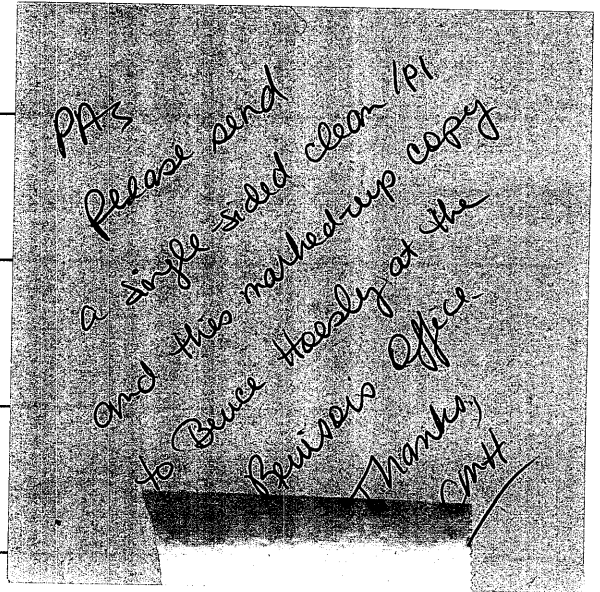 PAs
Please send
a single-sided clean /P1
and this marked-up copy
to Bruce Hoesly at the
Revisors Office.
Thanks,
CMH